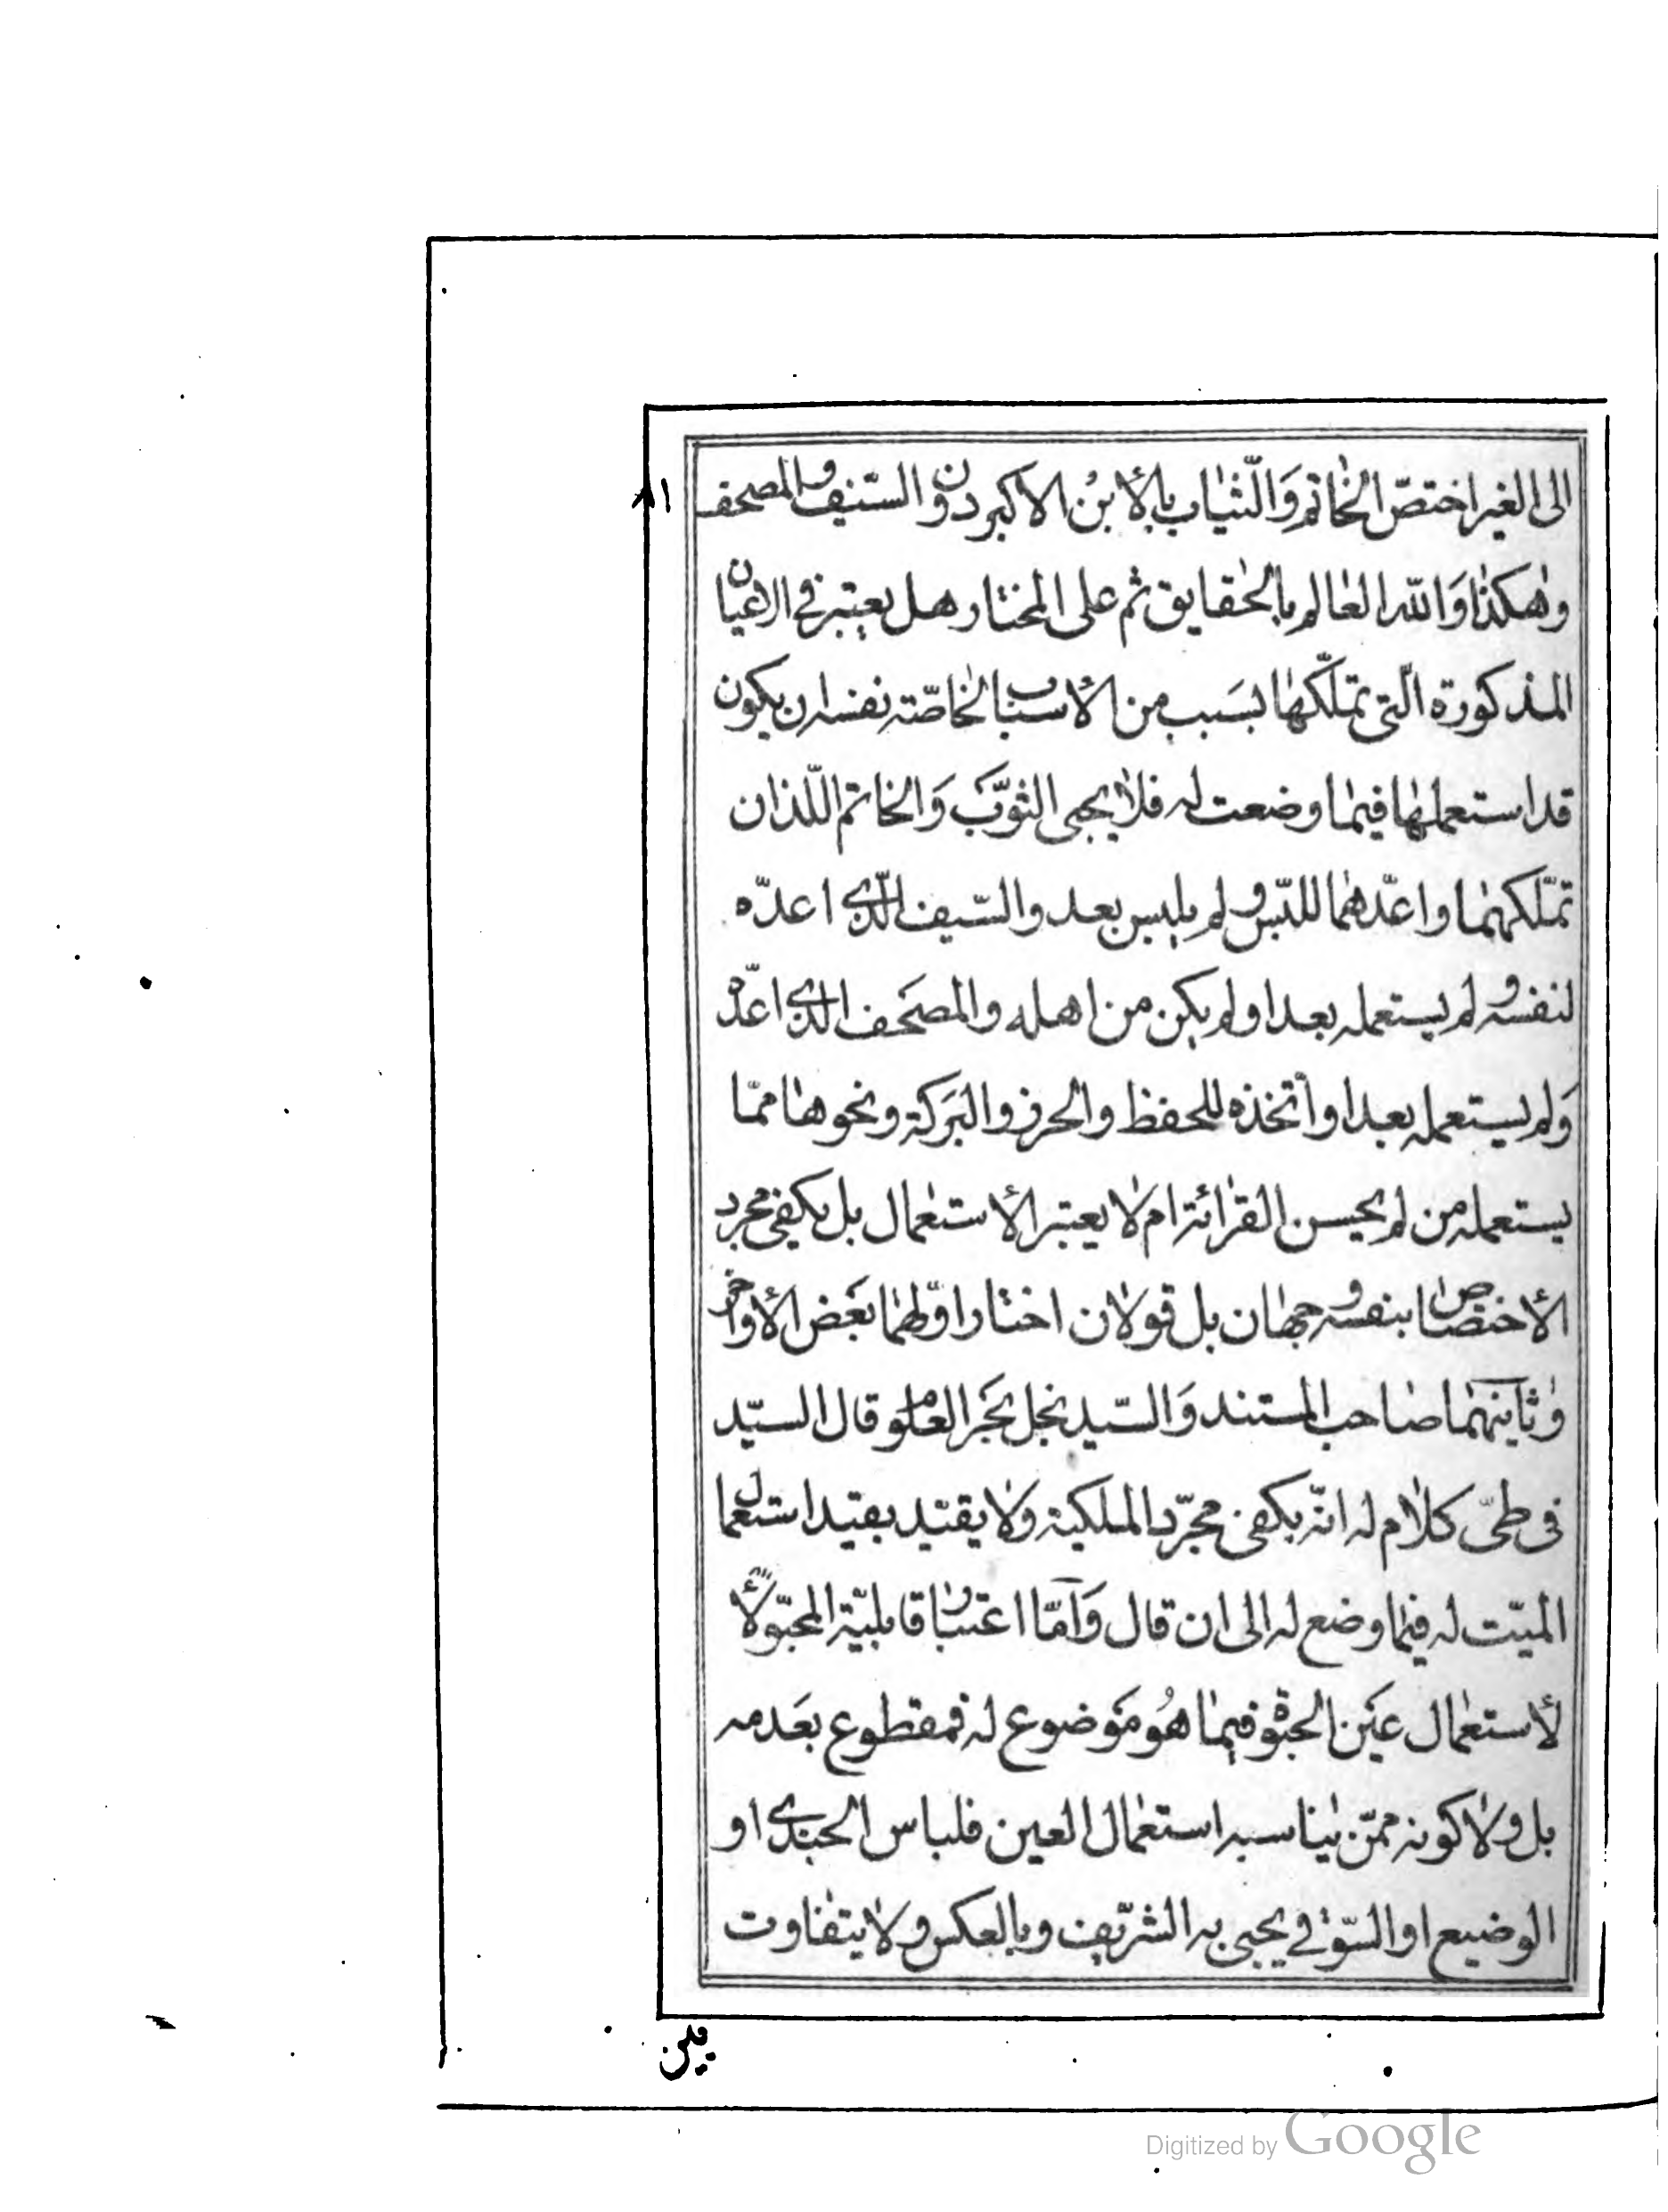 الى الغير اختصّ الخاتم وَالثياب بالأبن الأكبر دون السّيف والمصحف
٨١
وهكذا وَالله العالم بالحقايق ثم على المختار هل يعتبر في الاعيان
المذكورة الّتى تملّكها بسَبب من الأسباب الخاصّة نفسه ان يكون
قد استعملها فيما وضعت له فلا يحبى الثوب وَالخاتم اللّذان
تملّكهما واعدّهما للّبس ولم يلبس بعد والسّيف الّذى اعدّه
لنفسه ولم يستعمله بعد او لم يكن من اهله والمصحَف الّذى اعدّه
وَلم يستعمله بعد او اتخذه للحفظ والحرز والبَركة ونحوها ممّا
يستعمله من لم يحسن القرائة ام لا يعتبر الأستعمال بل يكفى مجرد
الأختصاص بنفسه وجهان بل قولان اختار اوّلهما بعَض الأواخر
وثانيهما صاحب المستند وَالسّيد نجل بحَر العلوم قال السيّد
فى طىّ كلام له انّه يكفى مجرّد الملكية ولا يقيّد بقيد استعمال
الميّت له فيما وضع له الى ان قال وَامّا اعتبار قابليّة المحبوّ لا
لأستعمال عيَن الحبوة فيما هُو مَوضوع له فمقطوع بعَدمه
بل ولا كونه ممّن يناسبه استعمال العين فلباس الجندى او
الوضيع او السّوقى يحبى به الشريف وبالعكس ولا يتفاوت
بين
Digitized by Google